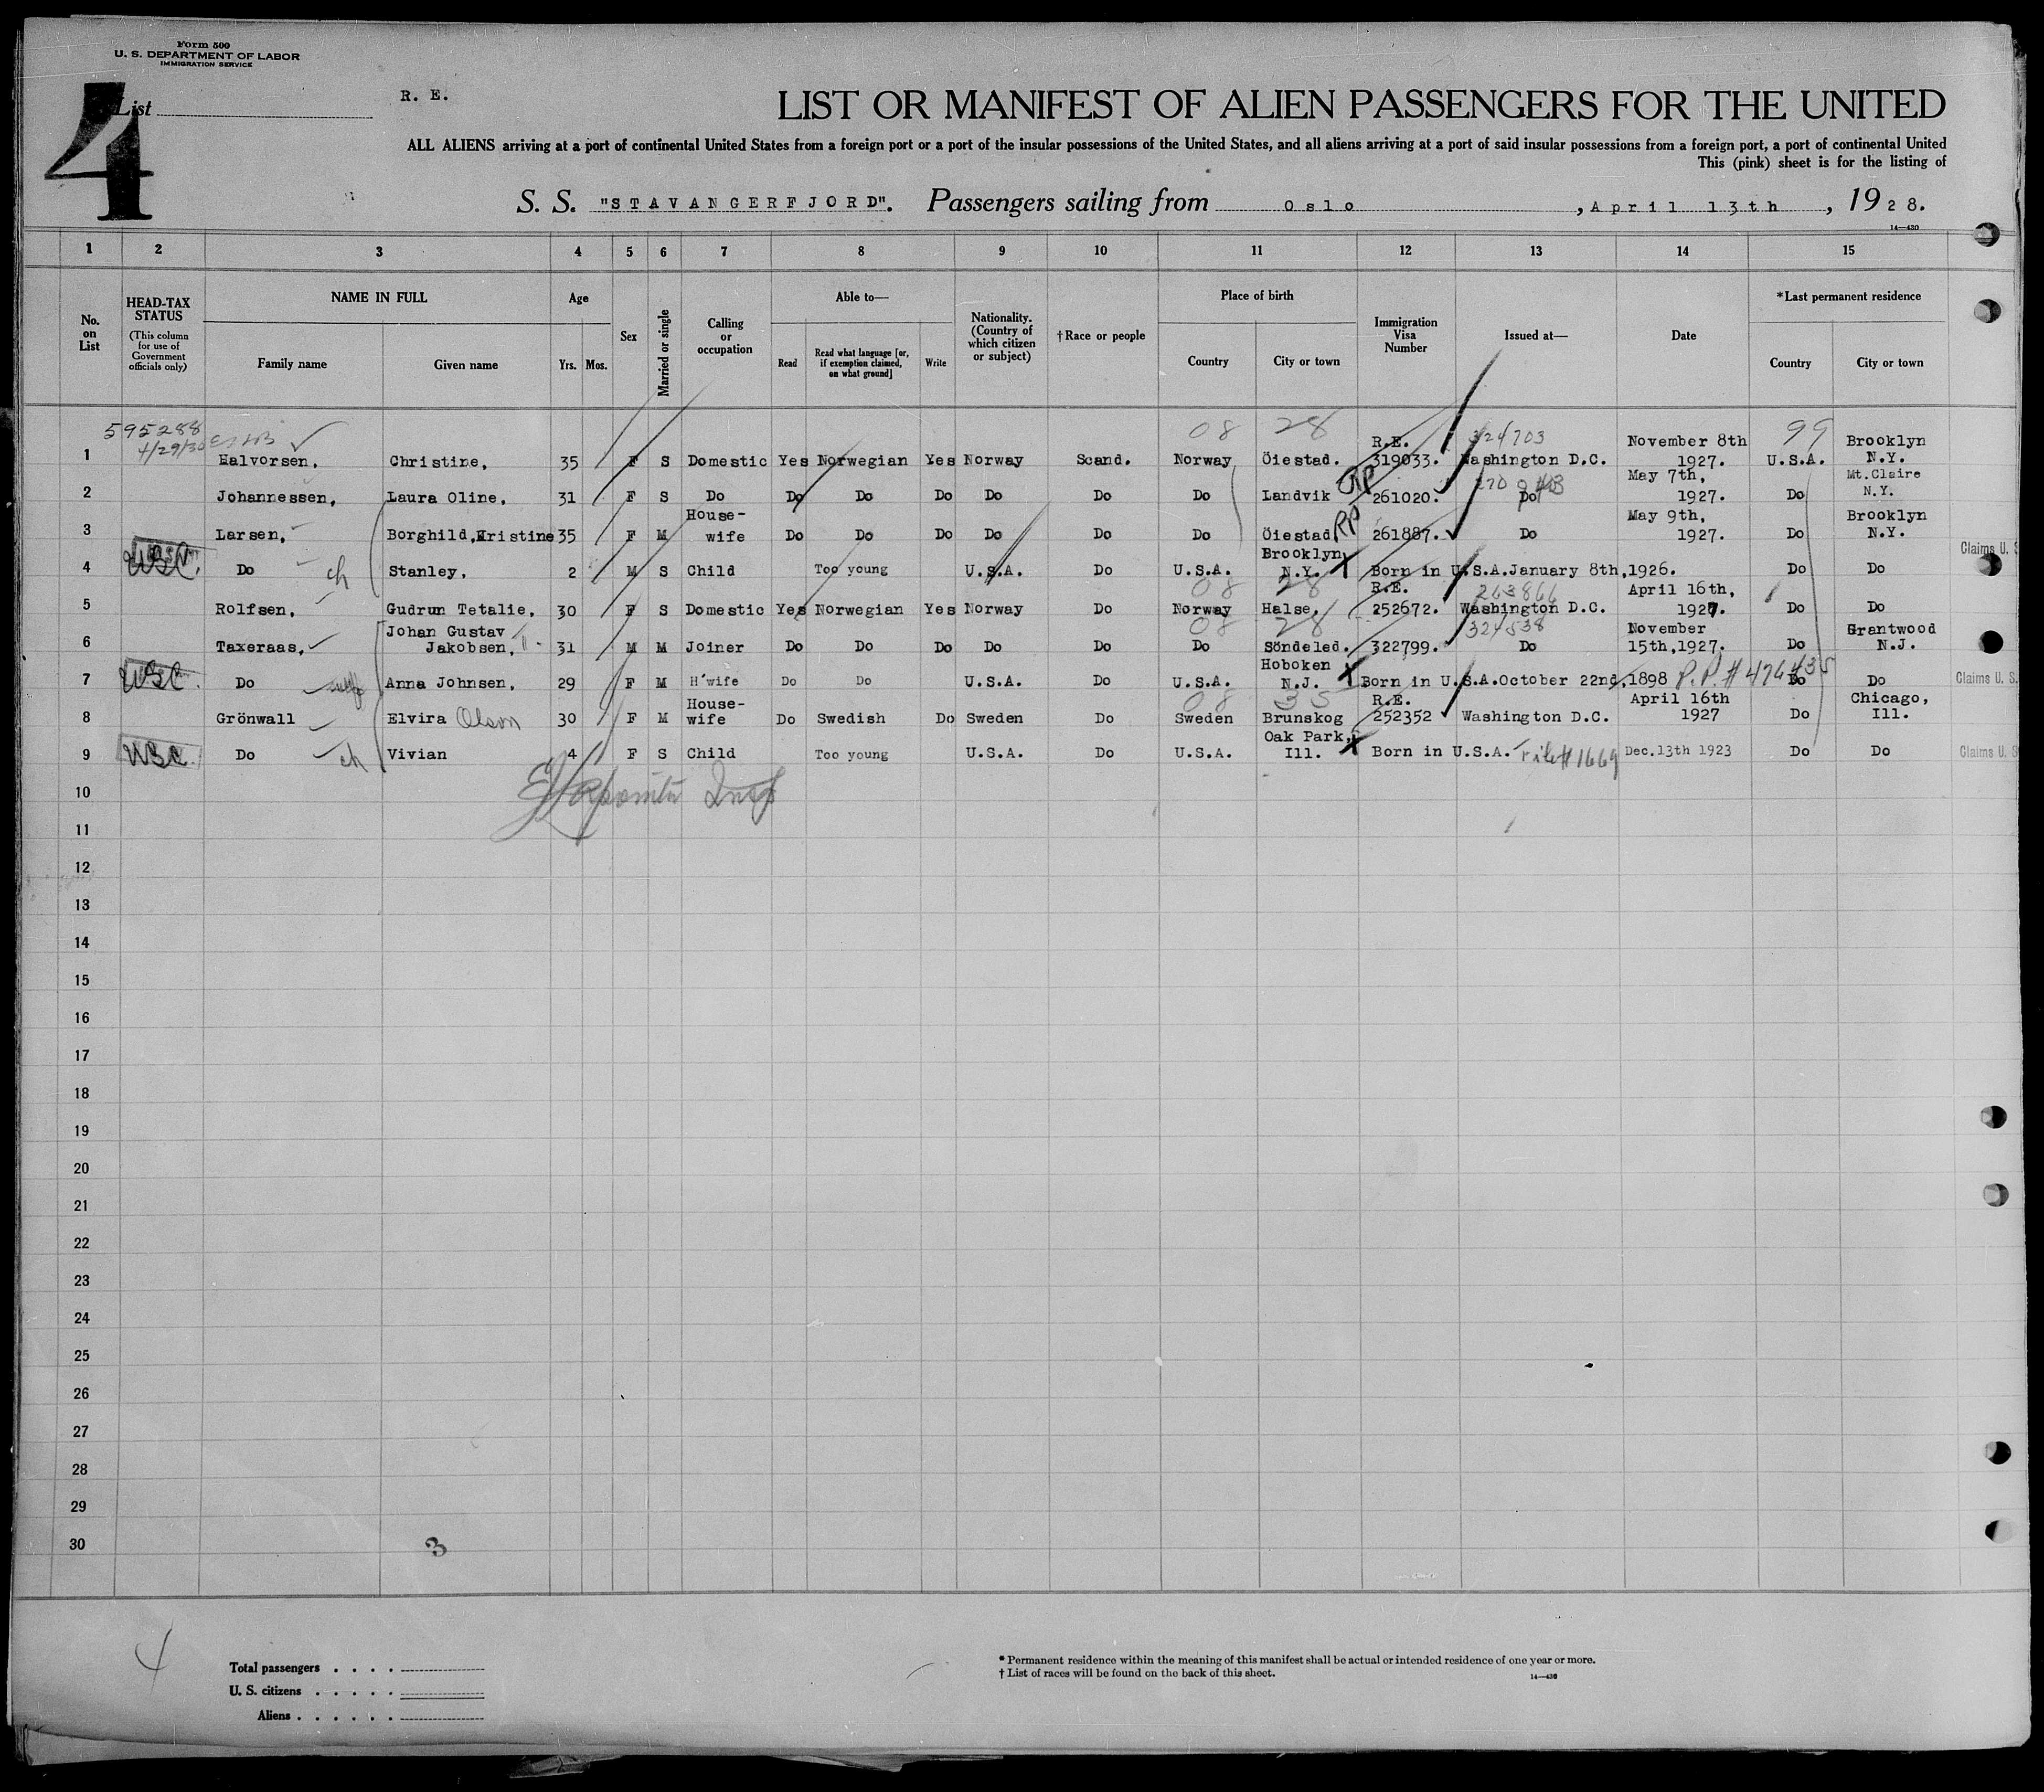 Form 500
U. S. DEPARTMENT OF LABOR
IMMIGRATION SERVICE
4
List
R. E.
LIST OR MANIFEST OF ALIEN PASSENGERS FOR THE UNITED
ALL ALIENS arriving at a port of continental United States from a foreign port or a port of the insular possessions of the United States, and all aliens arriving at a port of said insular possessions from a foreign port, a port of continental United
This (pink) sheet is for the listing of
S. S. "STAVANGERFJORD". Passengers sailing from Oslo , April 13th , 1928.
14—430
1 2 3 4 5 6 7 8 9 10 11 12 13 14 15
No. on List
HEAD-TAX STATUS
(This column for use of Government officials only)
NAME IN FULL
Family name Given name
Age
Yrs. Mos.
Sex
Married or single
Calling or occupation
Able to—
Read Read what language [or, if exemption claimed, on what ground] Write
Nationality. (Country of which citizen or subject)
†Race or people
Place of birth
Country City or town
Immigration Visa Number
Issued at—
Date
*Last permanent residence
Country City or town
595288
4/29/30
08 28 R.E. 324703 99
1 Halvorsen, Christine, 35 F S Domestic Yes Norwegian Yes Norway Scand. Norway Öiestad. 319033. Washington D.C. November 8th 1927. U.S.A. Brooklyn N.Y.
2 Johannessen, Laura Oline, 31 F S Do Do Do Do Do Do Do Landvik RP 261020. Do May 7th, 1927. Do Mt.Claire N.Y.
3 Larsen, Borghild,Kristine 35 F M House-wife Do Do Do Do Do Do Öiestad RP 261887. Do May 9th, 1927. Do Brooklyn N.Y.
4 USC. Do ch Stanley, 2 M S Child Too young U.S.A. Do U.S.A. Brooklyn N.Y. Born in U.S.A.January 8th,1926. Do Do Claims U. S
08 28 R.E. 263866
5 Rolfsen, Gudrun Tetalie, 30 F S Domestic Yes Norwegian Yes Norway Do Norway Halse, 252672. Washington D.C. April 16th, 1927. Do Do
08 28 324538
6 Taxeraas, Johan Gustav Jakobsen, 31 M M Joiner Do Do Do Do Do Do Söndeled. 322799. Do November 15th,1927. Do Grantwood N.J.
7 USC. Do wife Anna Johnsen, 29 F M H'wife Do Do U.S.A. Do U.S.A. Hoboken N.J. Born in U.S.A.October 22nd,1898 P.P.# 476435 Do Do Claims U. S.
08 35 R.E.
8 Grönwall Elvira Olson 30 F M House-wife Do Swedish Do Sweden Do Sweden Brunskog 252352 Washington D.C. April 16th 1927 Do Chicago, Ill.
9 USC Do ch Vivian 4 F S Child Too young U.S.A. Do U.S.A. Oak Park, Ill. Born in U.S.A. File# 1669 Dec.13th 1923 Do Do Claims U. S
10
Insp
11
12
13
14
15
16
17
18
19
20
21
22
23
24
25
26
27
28
29
30
3
4
Total passengers . . . .
U. S. citizens . . . . .
Aliens . . . . . .
* Permanent residence within the meaning of this manifest shall be actual or intended residence of one year or more.
† List of races will be found on the back of this sheet.
14—430